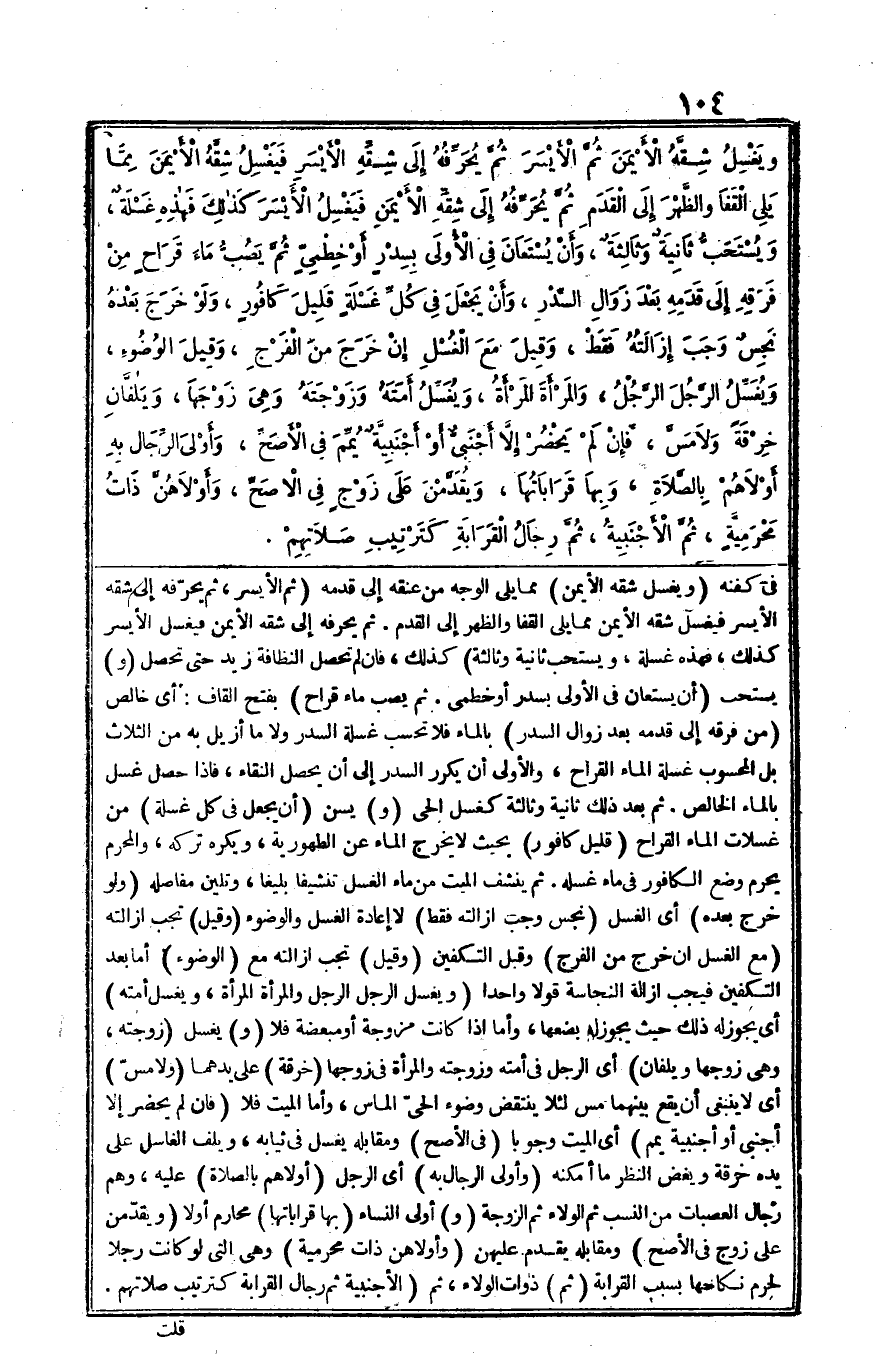 ١٠٤
ويَغْسِلُ شِقَّهُ الْأَيْمَنَ ثُمَّ الْأَيْسَرَ ثُمَّ يُحَرِّفُهُ إِلَى شِقِّهِ الْأَيْسَرِ فَيَغْسِلُ شِقَّهُ الْأَيْمَنَ مِمَّا
يَلِي الْقَفَا والظَّهْرَ إِلَى الْقَدَمِ ثُمَّ يُحَرِّفُهُ إِلَى شِقِّهِ الْأَيْمَنِ فَيَغْسِلُ الْأَيْسَرَ كَذٰلِكَ فَهٰذِهِ غَسْلَةٌ ،
وَيُسْتَحَبُّ ثَانِيَةٌ وَثَالِثَةٌ ، وَأَنْ يُسْتَعَانَ فِي الْأُولَى بِسِدْرٍ أَوْ خِطْمِيٍّ ثُمَّ يَصُبُّ مَاءَ قَرَاحٍ مِنْ
فَرْقِهِ إِلَى قَدَمِهِ بَعْدَ زَوَالِ السِّدْرِ ، وَأَنْ يَجْعَلَ فِي كُلِّ غَسْلَةٍ قَلِيلَ كَافُورٍ ، وَلَوْ خَرَجَ بَعْدَهُ
نَجِسٌ وَجَبَ إِزَالَتُهُ فَقَطْ ، وَقِيلَ مَعَ الْغُسْلِ إِنْ خَرَجَ مِنَ الْفَرْجِ ، وَقِيلَ الوُضُوءِ ،
وَيُغَسِّلُ الرَّجُلَ الرَّجُلُ ، وَالمَرْأَةَ المَرْأَةُ ، وَيُغَسِّلُ أَمَتَهُ وَزَوْجَتَهُ وَهِىَ زَوْجَهَا ، وَيَلُفَّانِ
خِرْقَةً وَلَامَسَّ ، فَإِنْ لَمْ يَحْضُرْ إِلَّا أَجْنَبِيٌّ أَوْ أَجْنَبِيَّةٌ يُمِّمَ فِي الْأَصَحِّ ، وَأَوْلَى الرِّجَالِ بِهِ
أَوْلَاهُمْ بِالصَّلَاةِ ، وَبِهَا قَرَابَاتُهَا ، وَيُقَدَّمْنَ عَلَى زَوْجٍ فِي الْاصَحِّ ، وَأَوْلَاهُنَّ ذَاتُ
مَحْرَمِيَّةٍ ، ثُمَّ الْأَجْنَبِيةُ ، ثُمَّ رِجَالُ الْقَرَابَةِ كَتَرْتِيبِ صَلَاتِهِمْ .
فى كفنه (ويغسل شقه الأيمن) مما يلى الوجه من عنقه إلى قدمه (ثم الأيسر ، ثم يحرّفه إلى شقه
الأيسر فيغسل شقه الأيمن مما يلى القفا والظهر إلى القدم . ثم يحرفه إلى شقه الأيمن فيغسل الأيسر
كذلك ، فهذه غسلة ، ويستحب ثانية وثالثة) كذلك ، فان لم تحصل النظافة زيد حتى تحصل (و)
يستحب (أن يستعان فى الأولى بسدر أو خطمى . ثم يصب ماء قراح) بفتح القاف : أى خالص
(من فرقه إلى قدمه بعد زوال السدر) بالماء فلا تحسب غسلة السدر ولا ما أزيل به من الثلاث
بل المحسوب غسلة الماء القراح ، والأولى أن يكرر السدر إلى أن يحصل النقاء ، فاذا حصل غسل
بالماء الخالص . ثم بعد ذلك ثانية وثالثة كغسل الحى (و) يسن (أن يجعل فى كل غسلة) من
غسلات الماء القراح (قليل كافور) بحيث لا يخرج الماء عن الطهورية ، ويكره تركه ، والمحرم
يحرم وضع الكافور فى ماء غسله . ثم ينشف الميت من ماء الغسل تنشيفا بليغا ، وتلين مفاصله (ولو
خرج بعده) أى الغسل (نجس وجب ازالته فقط) لا إعادة الغسل والوضوء (وقيل) تجب ازالته
(مع الغسل ان خرج من الفرج) وقبل التكفين (وقيل) تجب ازالته مع (الوضوء) أما بعد
التكفين فيجب ازالة النجاسة قولا واحدا (ويغسل الرجل الرجل والمرأة المرأة ، ويغسل أمته)
أى يجوز له ذلك حيث يجوز له بضعها ، وأما اذا كانت مزوجة أو مبعضة فلا (و) يغسل (زوجته ،
وهى زوجها ويلفان) أى الرجل فى أمته وزوجته والمرأة فى زوجها (خرقة) على يدهما (ولا مسّ)
أى لا ينبغى أن يقع بينهما مس لئلا ينتقض وضوء الحىّ الماس ، وأما الميت فلا (فان لم يحضر إلا
أجنبى أو أجنبية يمم) أى الميت وجوبا (فى الأصح) ومقابله يغسل فى ثيابه ، ويلف الغاسل على
يده خرقة ويغض النظر ما أمكنه (وأولى الرجال به) أى الرجل (أولاهم بالصلاة) عليه ، وهم
رجال العصبات من النسب ثم الولاء ثم الزوجة (و) أولى النساء (بها قراباتها) محارم أولا (ويقدّمن
على زوج فى الأصح) ومقابله يقدم عليهن (وأولاهن ذات محرمية) وهى التى لو كانت رجلا
لحرم نكاحها بسبب القرابة (ثم) ذوات الولاء ، ثم (الأجنبية ثم رجال القرابة كترتيب صلاتهم .
قلت